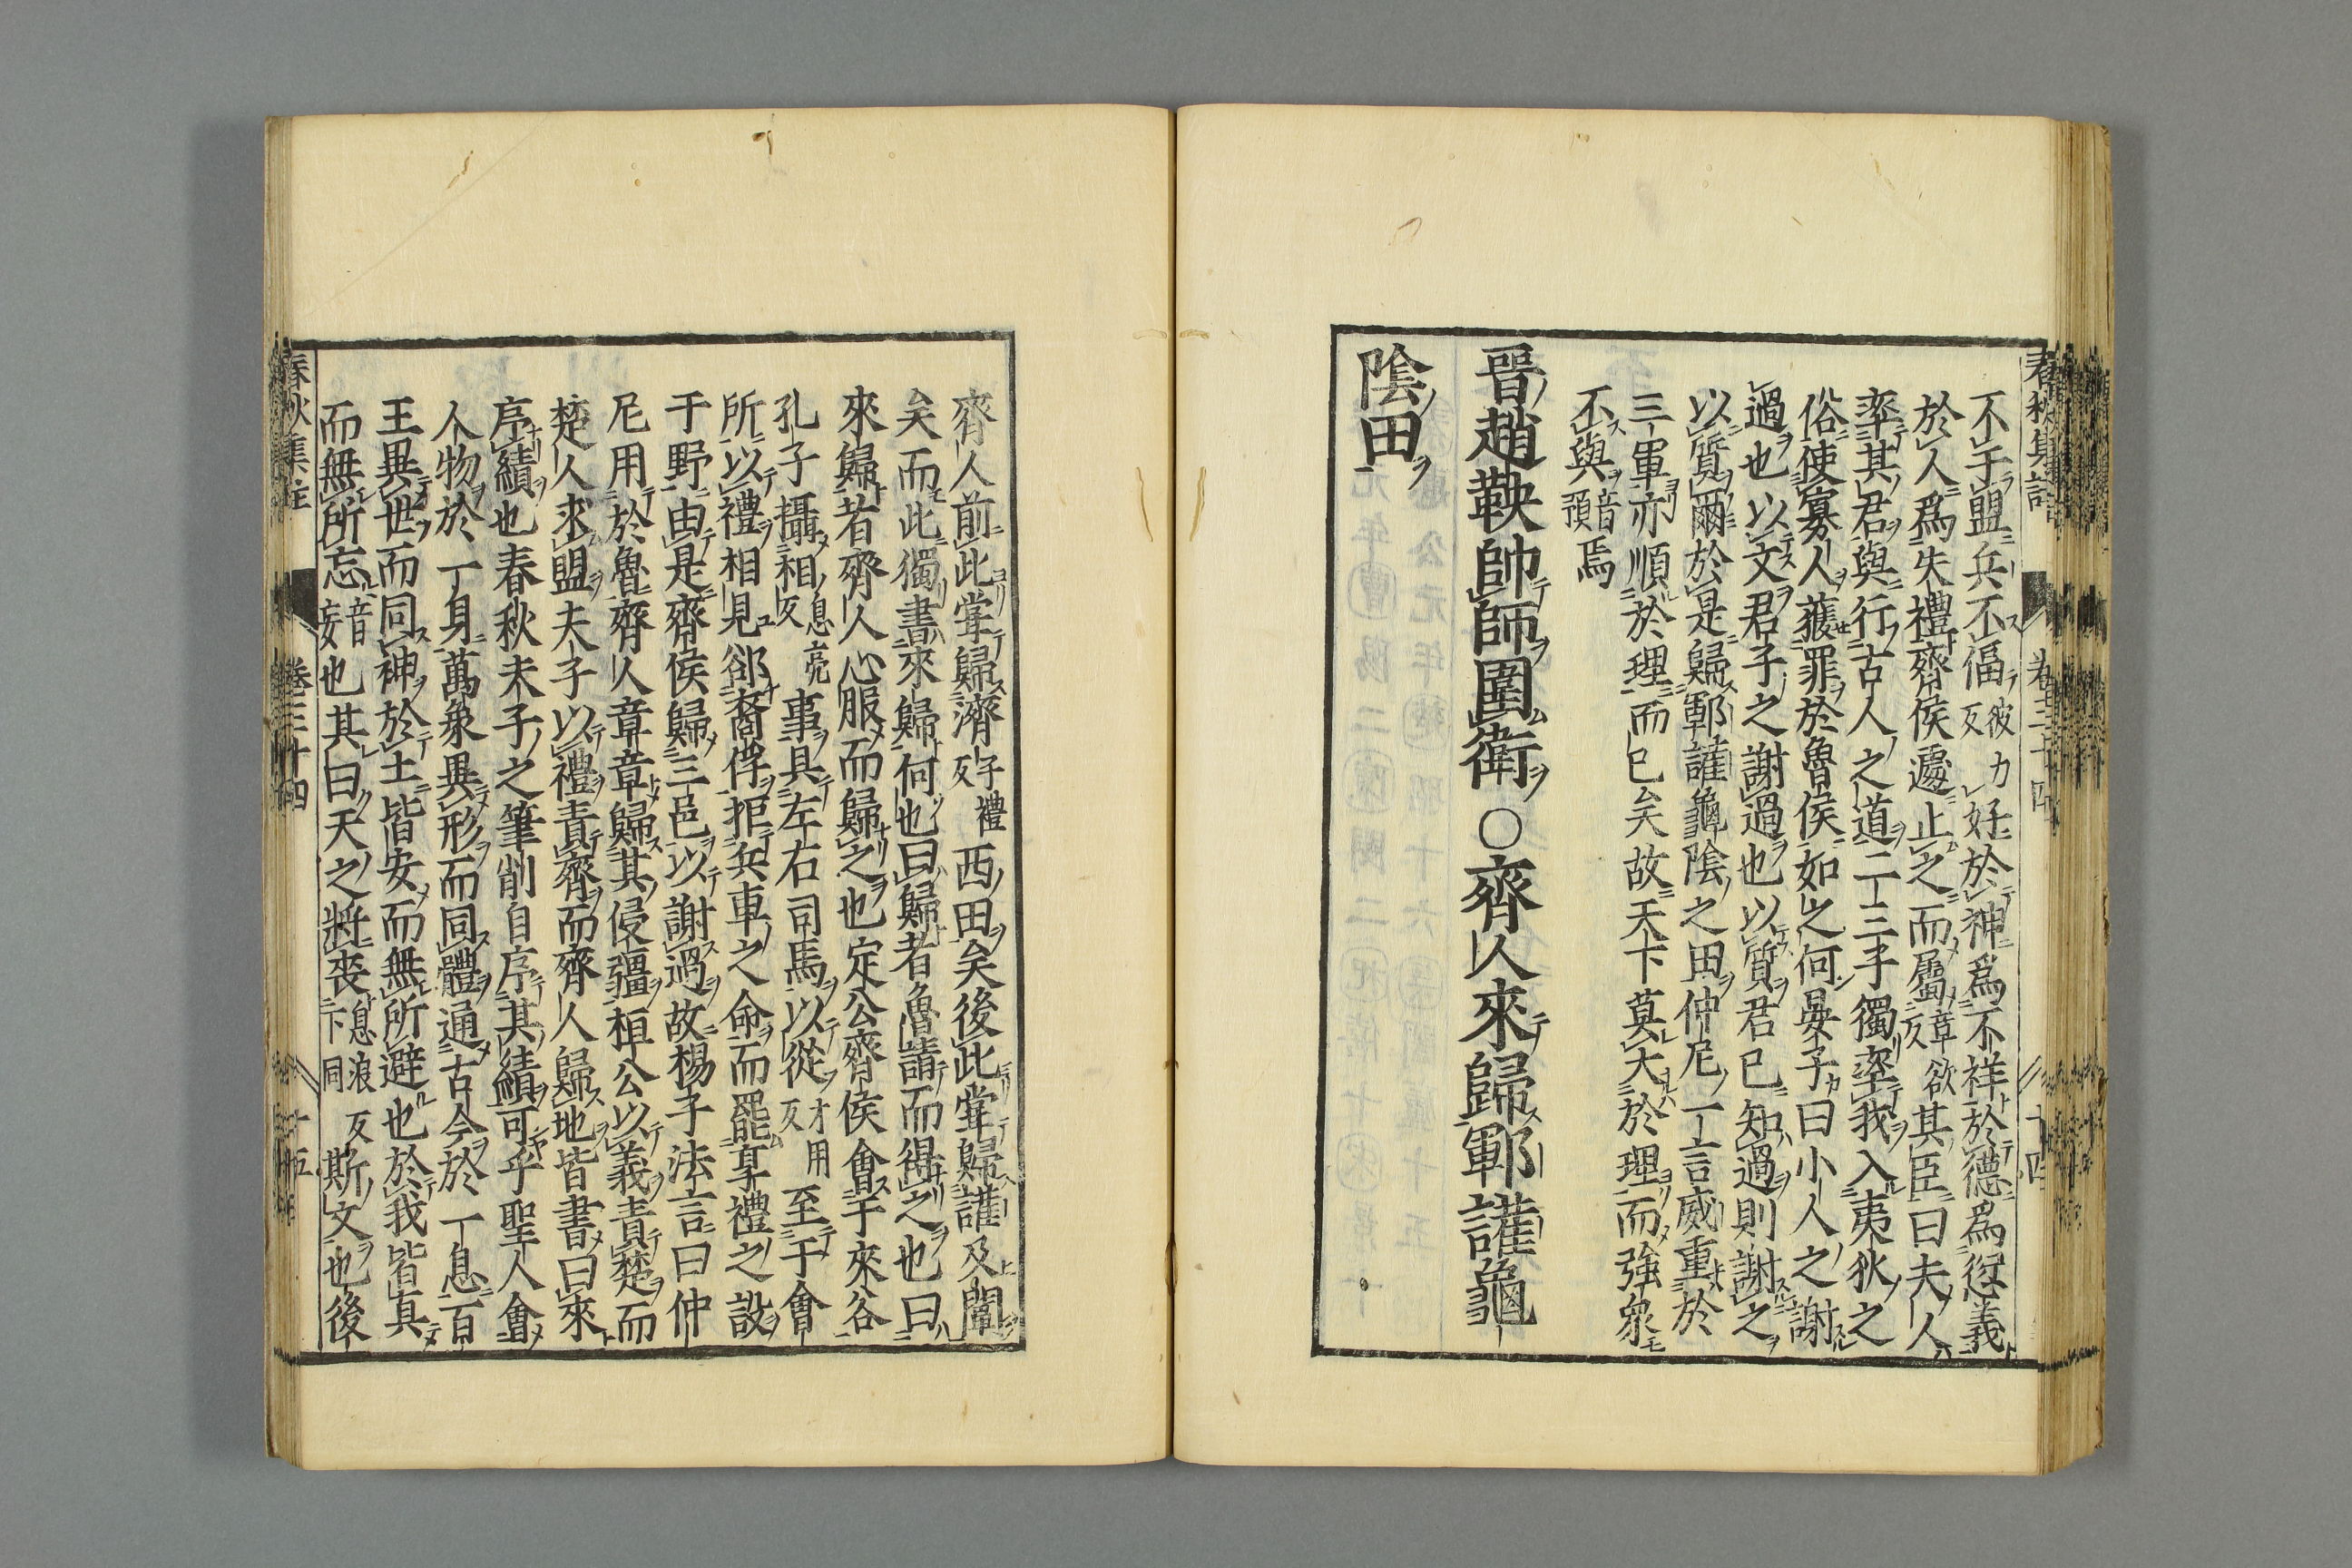 春秋集註 卷三十四 十四
不于盟兵不偪彼力反好於神爲不祥於德爲愆義
於人爲失禮齊侯遽止之而屬章欲反其臣曰夫人
率其君與行古人之道二三子獨率我入夷狄之
俗使寡人獲罪於魯侯如之何晏子曰小人之謝
過也以文君子之謝過也以質君已知過則謝之
以質爾於是歸鄆讙龜陰之田仲尼一言威重於
三軍亦順於理而已矣故天下莫大於理而強衆
不與音預焉
晉趙鞅帥師圍衛○齊人來歸鄆讙龜
陰田
齊人前此嘗歸濟子禮反西田矣後此嘗歸讙及闡
矣而此獨書來歸何也曰歸者魯請而得之也曰
來歸者齊人心服而歸之也定公齊侯會于夾谷
孔子攝相息亮反事具左右司馬以從才用反至于會
所以禮相見郤裔俘拒兵車之命而罷享禮之設
于野由是齊侯歸三邑以謝過故楊子法言曰仲
尼用於魯齊人章章歸其侵疆桓公以義責楚而
楚人求盟夫子以禮責齊而齊人歸地皆書曰來
序績也春秋夫子之筆削自序其績可乎聖人會
人物於一身萬象異形而同體通古今於一息百
王異世而同神於土皆安而無所避也於我皆真
而無所忘音妄也其曰天之將喪息浪反下同斯文也後
春秋集註 卷三十四 十五